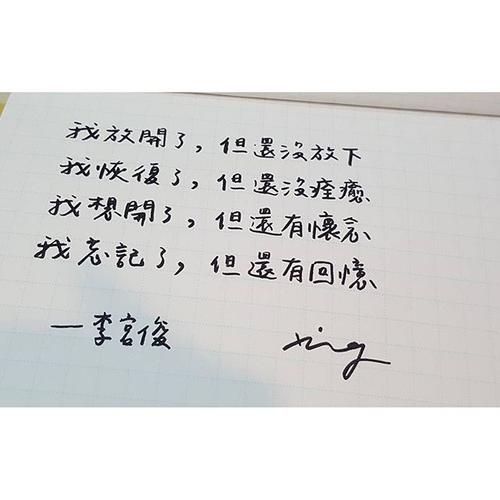 我放開了，但還沒放下
我恢復了，但還沒痊癒
我想開了，但還有懷念
我忘記了，但還有回憶
一李宮俊
xing